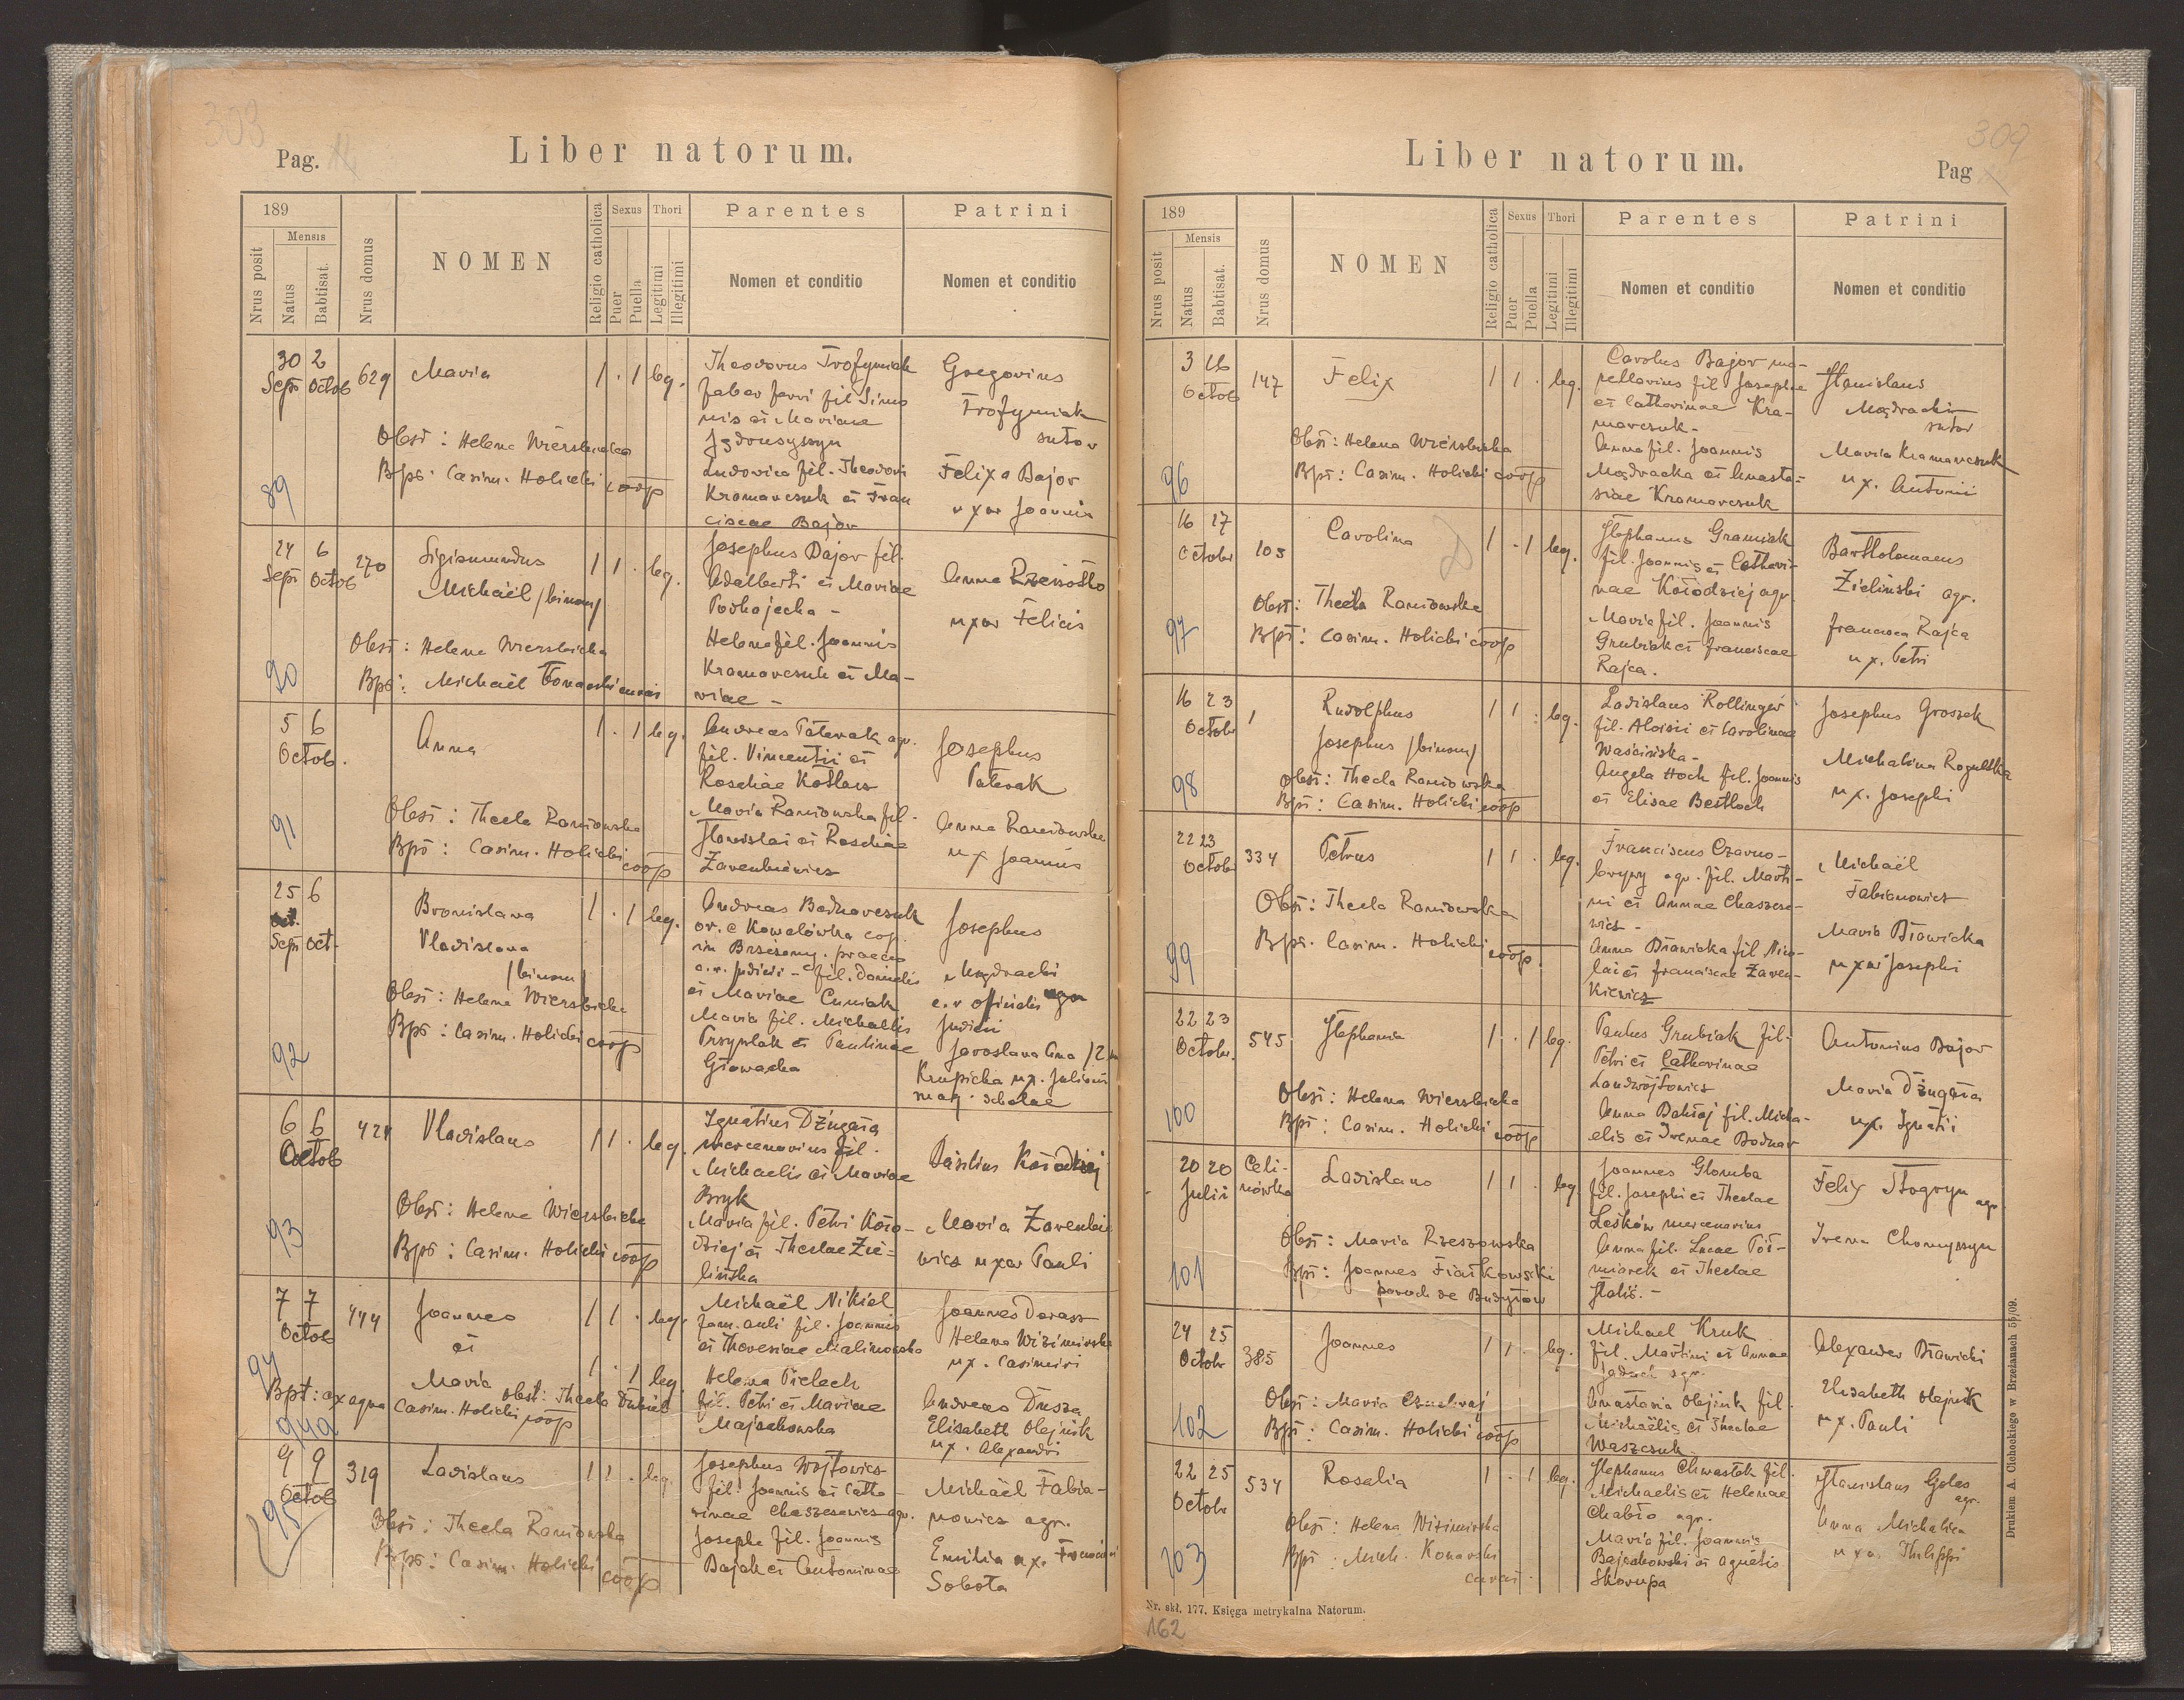 303
Pag.
Liber natorum.
189
Mensis
Nrus posit
Natus
Babtisat.
Nrus domus
NOMEN
Religio catholica
Sexus
Puer
Puella
Thori
Legitimi
Illegitimi
Parentes
Nomen et conditio
Patrini
Nomen et conditio
30 2
Sept Octob
629
Maria
1 . 1 leg.
Theodorus Trofymiak
faber ferri fil Simo
nis et Mariae
Ludovica fil. Theodori
Kramarczuk et Fran
ciscae Bajor
Gregorius
Trofymiak
sutor
Felixa Bajor
uxor Joannis
Obst: Helena Wierzbicka
Bpt: Casim. Holicki coop
89
24 6
Sept Octob
270
Sigismundus
Michaël /binom/
1 1 . leg.
Josephus Bajor fil.
Adalberti et Mariae
Podhajecka -
Helena fil. Joannis
Kramarczuk et Ma-
riae -
Anna
uxor Felicis
Obst: Helena Wierzbicka
Bpt: Michaël
90
5 6
Octob.
Anna
1 . 1 leg.
Andreas Paterak agr.
fil. Vincentii et
Rosaliae Kotlarz
Maria Ramowska fil.
Stanislai et Rosaliae
Zarenkiewicz
Josephus
Paterak
Anna Ramowska
ux Joannis
Obst: Thecla Ramowska
Bpt: Casim. Holicki
coop
91
25 6
Sept Oct.
Bronislava
Vladislava
/binom/
1 . 1 leg.
Andreas Bodnarczuk
or. e Kowalówka cop.
in Brzeżany. praeco
c.r. judicii - fil. Danielis
et Mariae Cuniak
Maria fil. Michaelis
Przyszlak et Paulinae
Głowacka
Josephus
Mozdracki
c.r officialis
Judicii
Jaroslava Anna /2
Krupicka ux. Juliani
mag. scholae
Obst: Helena Wierzbicka
Bpt: Casim. Holicki coop
92
6 6
Octob
424
Vladislaus
1 1 . leg.
Ignatius Dżugała
mercenarius fil.
Michaelis et Mariae
Bryk
Maria fil. Petri Koło-
dziej et Theclae Zie-
lińska
Basilius Kołodziej
Maria Zarenkie
wicz uxor Pauli
Obst: Helena Wierzbicka
Bpt: Casim. Holicki coop
93
7 7
Octob
444
Joannes
et
Maria
1 1 . leg.
1 . 1 leg
Michaël Nikiel
fam. auli fil. Joannis
et Theresiae Malinowska
Helena Pielech
fil. Petri et Mariae
Majachowska
Joannes Darasz
Helena Wizimirska
ux. Casimiri
Andreas Dusza
Elisabeth Olejnik
ux. Alexandri
94
Bpt: ex aqua
obst: Thecla
Casim. Holicki coop
94a
9 9
Octob
319
Ladislaus
1 1 . leg.
Josephus Wojtowicz
fil. Joannis et Catha-
rinae Chaszczewicz agr.
Josepha fil. Joannis
Bajak et Antoninae
Michaël Fabia-
nowicz agr.
Emilia ux.
Sobota
Obst: Thecla Ramowska
Bpt: Casim. Holicki
coop
95
309
Pag
Liber natorum.
189
Mensis
Nrus posit
Natus
Babtisat.
Nrus domus
NOMEN
Religio catholica
Sexus
Puer
Puella
Thori
Legitimi
Illegitimi
Parentes
Nomen et conditio
Patrini
Nomen et conditio
3 16
Octob
147
Felix
1 1 . leg.
Carolus Bajor
fil Josephi
et Catharinae Kra-
marczuk -
Anna fil. Joannis
Mozdracka et Anasta-
siae Kramarczuk
Stanislaus
Mozdracki
sutor
Maria Kramarczuk
ux. Antonii
Obst: Helena Wierzbicka
Bpt: Casim. Holicki coop
96
16 17
Octobr
103
Carolina
1 . 1 leg.
Stephanus Gramiak
fil. Joannis et Cathari-
nae Kołodziej agr.
Maria fil. Joannis
Grubiak et Franciscae
Rajca.
Bartholomaeus
Zieliński agr.
Francisca Rajca
ux. Petri
Obst: Thecla Ramowska
Bpt: Casim. Holicki coop
97
16 23
Octobr
1
Rudolphus
Josephus /binom/
1 1 . leg.
Ladislaus Rollinger
fil. Aloisii et Carolinae
Angela Hoch fil. Joannis
et Elisae Bestloch
Josephus Groszek
Michalina Rogulska
ux. Josephi
Obst: Thecla Ramowska
Bpt: Casim. Holicki coop
98
22 23
Octobr
334
Petrus
1 1 . leg.
Franciscus Czarno-
brywy agr. fil. Marti-
ni et Annae Chaszcze-
wicz -
Anna Bławicka fil Nico-
lai et Franciscae Zaren-
kiewicz
Michaël
Fabianowicz
Maria Bławicka
uxor Josephi
Obst: Thecla Ramowska
Bpt. Casim. Holicki
coop.
99
22 23
Octobr.
545
Stephania
1 . 1 leg.
Paulus Grubiak fil.
Petri et Catharinae
Landwojtowicz
Anna Bahłaj fil. Micha-
elis et Irenae Bodnar
Antonius Bajor
Maria Dżugała
ux. Ignatii
Obst: Helena Wierzbicka
Bpt: Casim. Holicki coop
100
20 20
Julii
Celi-
nówka
Ladislaus
1 1 . leg.
Joannes Glomba
fil. Josephi et Theclae
Leśków mercenarius
Anna fil. Lucae Pół-
miarek et Theclae
Felix Stogryn agr.
Irena Chomyszyn
Obst: Maria Rzeszowska
Bpt: Joannes Fiałkowski
paroch de Buszków
101
24 25
Octobr
385
Joannes
1 1 . leg.
Michael Kruk
fil. Martini et Annae
agr.
Anastasia Olejnik fil.
Michaëlis et Theclae
Waszczuk
Alexander Bławicki
Elisabeth Olejnik
ux. Pauli
Obst: Maria
Bpt: Casim. Holicki coop
102
22 25
Octobr
534
Rosalia
1 . 1 leg.
Stephanus Chwastek fil.
Michaelis et Helenae
Chabło agr.
Maria fil. Joannis
Bajrakowski et Agnetis
Skorupa
Stanislaus Golas
agr.
Anna Michalica
uxor Philippi
Obst: Helena Wizimirska
Bpt: Mich. Konarski
curat.
103
Nr. skł. 177. Księga metrykalna Natorum.
162
Drukiem A. Cichockiego w Brzeżanach 55/09.